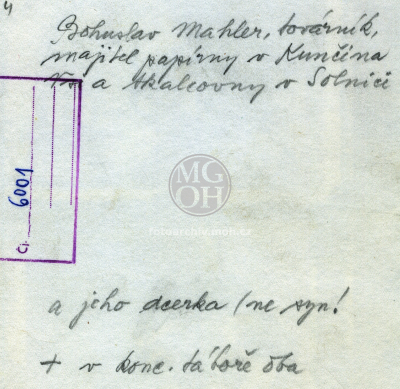 4
Bohuslav Mahler, továrník,
majitel papírny v Kunčina
Vsi a tkalcovny v Solnici
Čj. 6001
MG
OH
fotoarchiv.moh.cz
a jeho dcerka (ne syn!
+ v konc. táboře oba